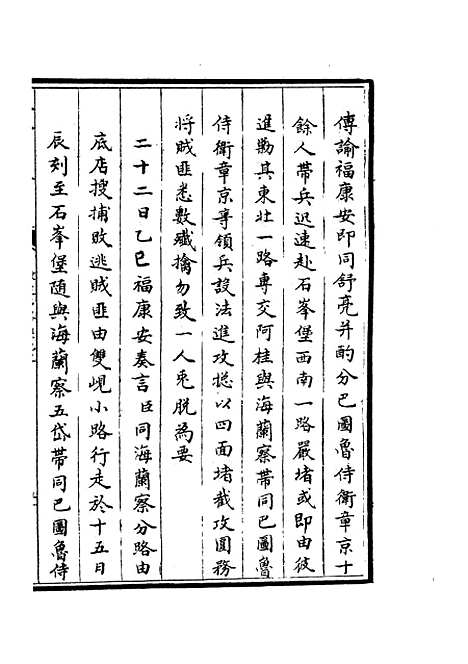 傳諭福康安即同舒亮并酌分巴圖魯侍衛章京十
餘人帶兵迅速赴石峯堡西南一路嚴堵或即由彼
進勦其東北一路專交阿桂與海蘭察帶同巴圖魯
侍衛章京等領兵設法進攻揔以四面堵截攻圍務
將賊匪悉數殲擒勿致一人兎脫為要
二十二日乙巳福康安奏言臣同海蘭察分路由
底店搜捕敗逃賊匪由雙峴小路行走於十五日
辰刻至石峯堡随與海蘭察五岱帶同巴圖魯侍